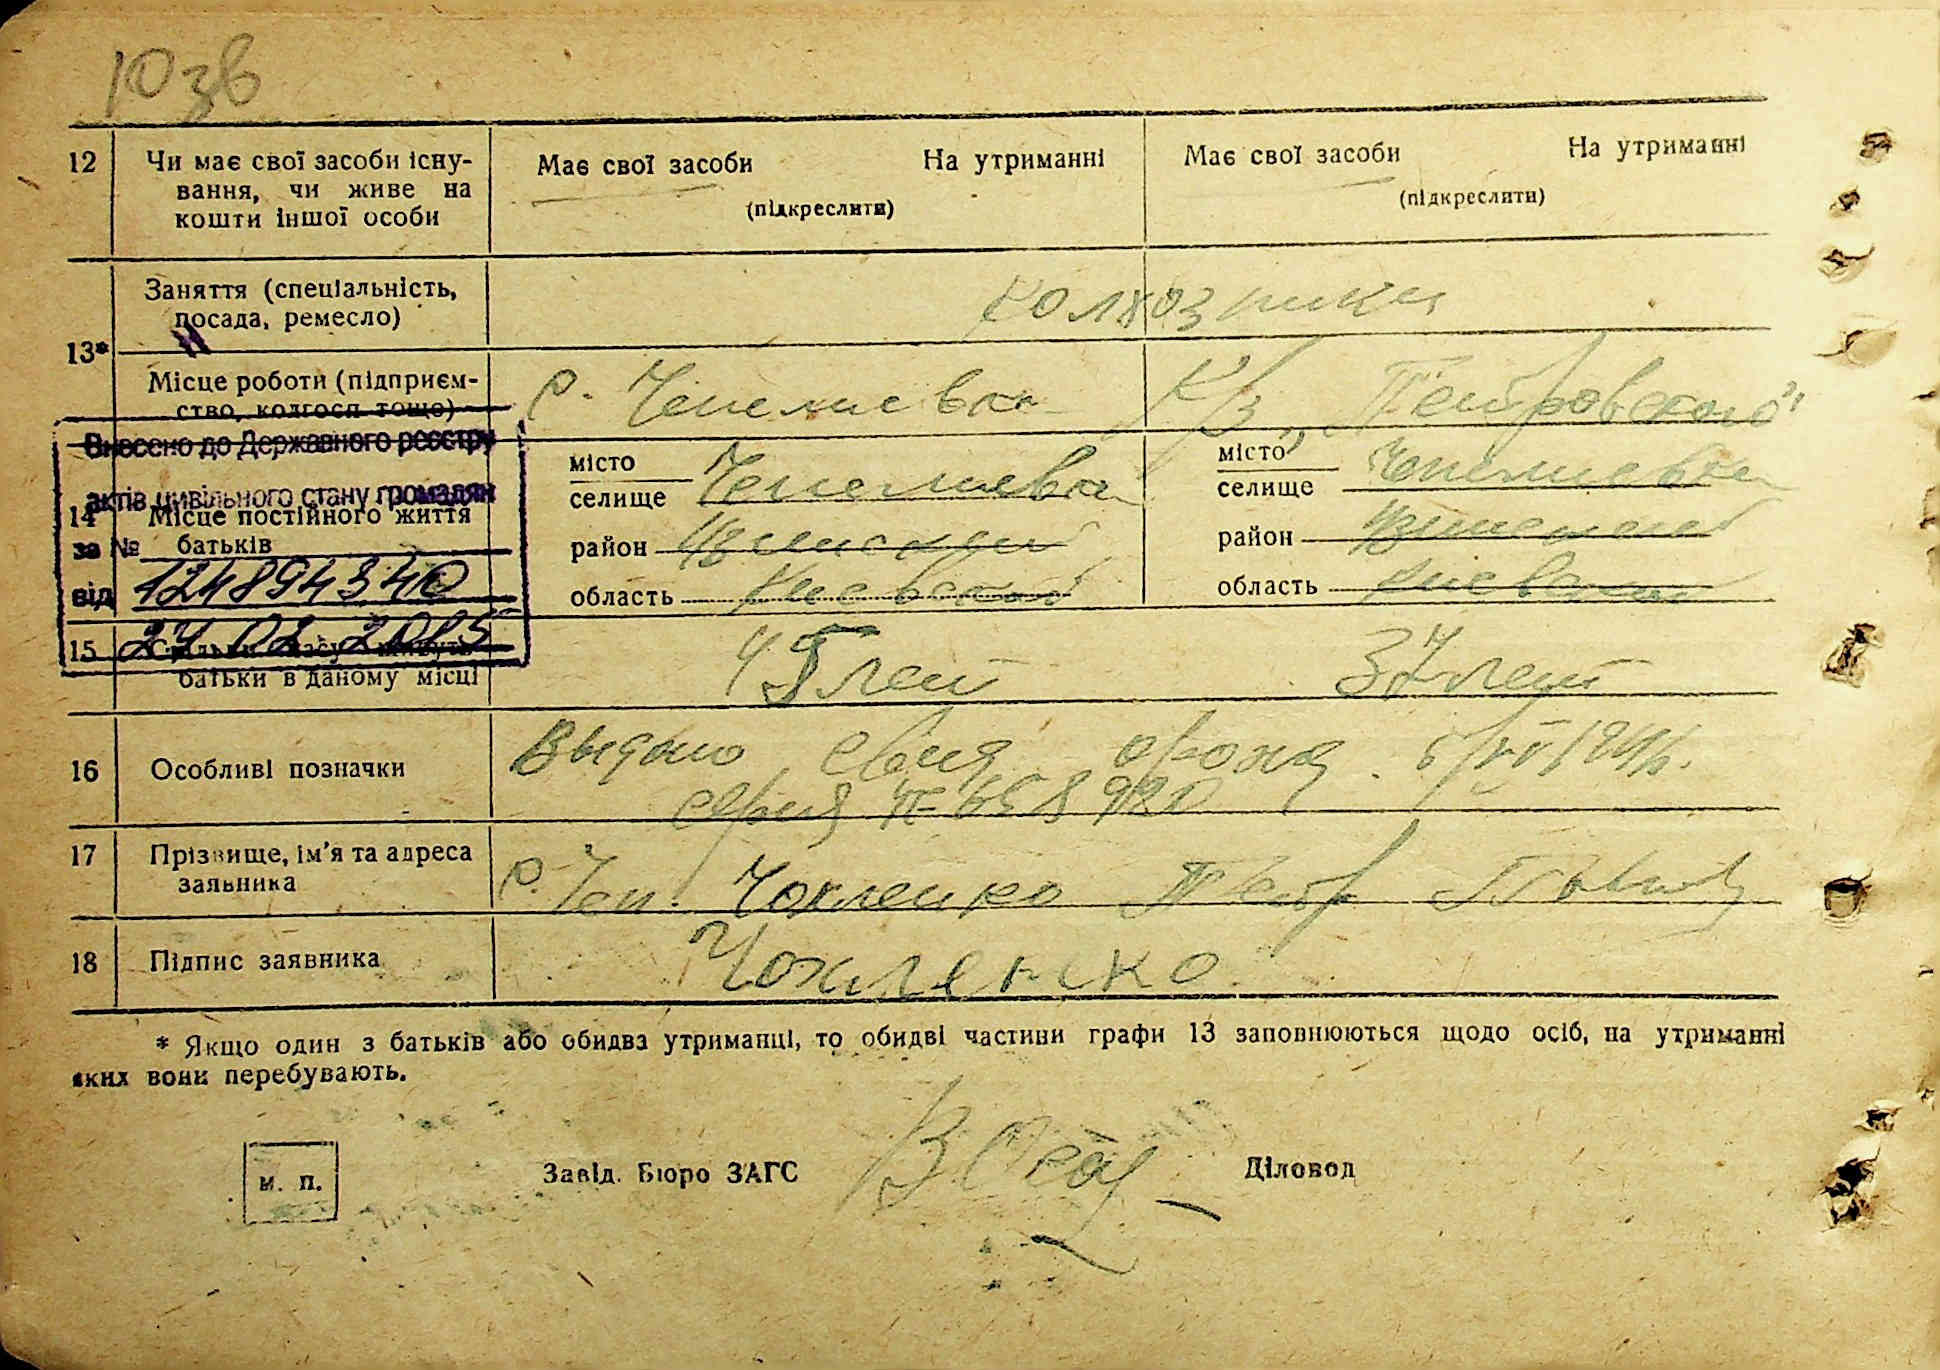 10 зв
12 Чи має свої засоби існу- Має свої засоби На утриманні Має свої засоби На утриманні
вання, чи живе на
кошти іншої особи (підкреслити) (підкреслити)
Заняття (спеціальність, колхозники
посада, ремесло)
13*
Місце роботи (підприєм- с. Чепелиевка К/з „Петровского"
ство, колгосп тощо)
Внесено до Державного реєстру
актів цивільного стану громадян
за №
від 12489434
27 02 2015
14 Місце постійного життя
батьків
місто місто
селище Чепелиевка селище Чепелиевка
район район
область Киевской область Киевской
15 Скільки часу живуть
батьки в даному місці лет 37 лет
16 Особливі позначки Выдано
серия
17 Прізвище, ім'я та адреса с. Чеп. Чохленко Петр
заявника
18 Підпис заявника Чохленко
* Якщо один з батьків або обидва утриманці, то обидві частини графи 13 заповнюються щодо осіб, на утриманні
яких вони перебувають.
М. П. Завід. Бюро ЗАГС Діловод